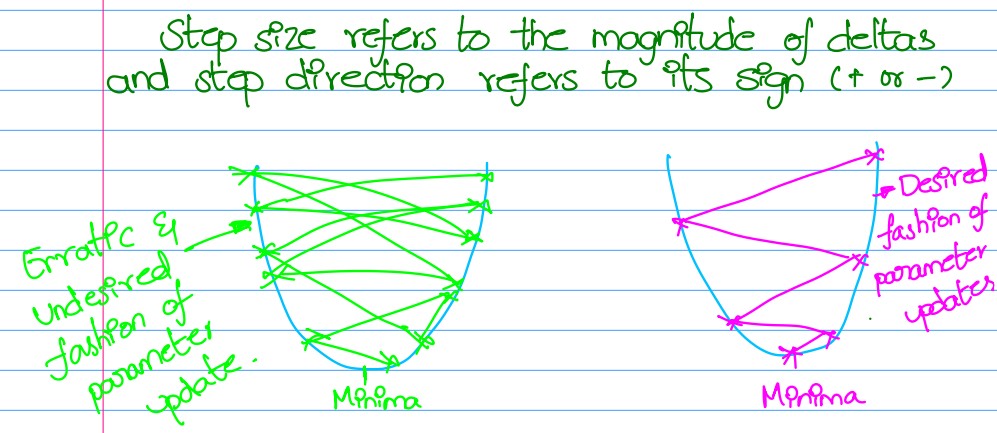 Step size refers to the magnitude of deltas
and step direction refers to its sign (+ or -)
Erratic &
undesired
fashion of
parameter
update.
Minima
Desired
fashion of
parameter
updates
Minima